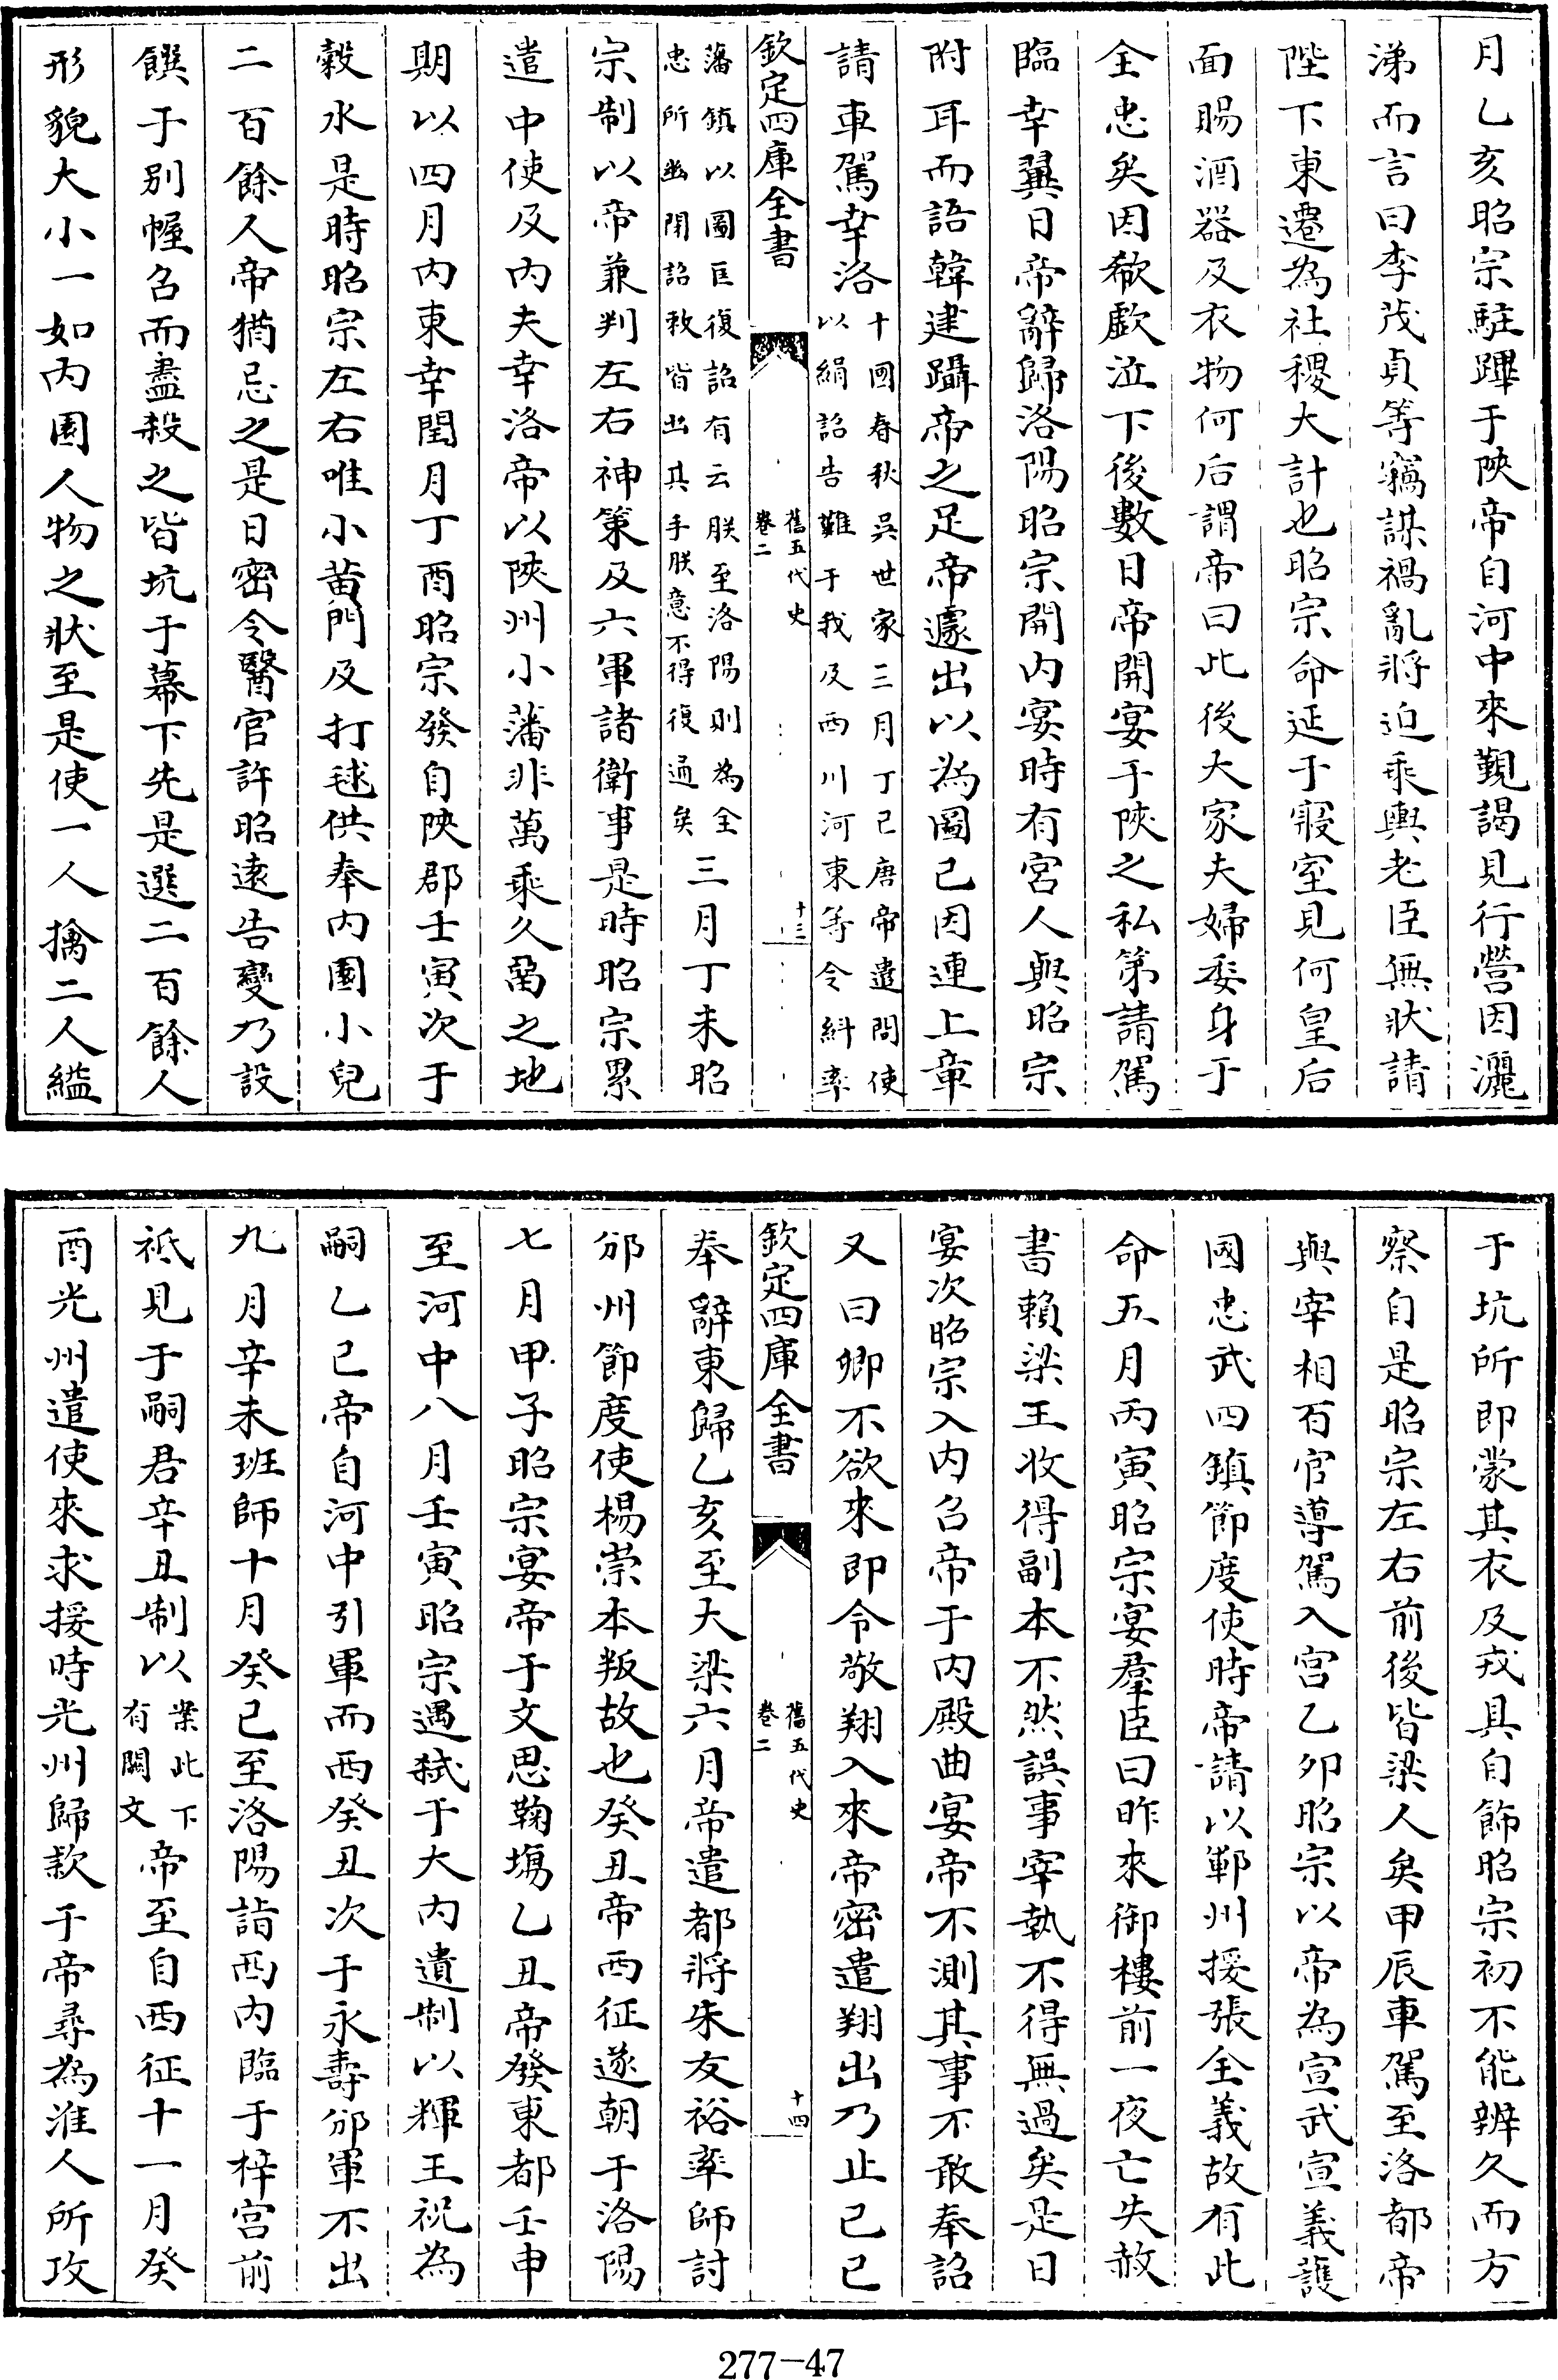 月乙亥昭宗駐蹕于陜帝自河中來覲謁見行營因灑
涕而言曰李茂貞等竊謀禍亂將迫乘輿老臣無狀請
陛下東遷為社稷大計也昭宗命延于寢室見何皇后
面賜酒器及衣物何后謂帝曰此後大家夫婦委身于
全忠矣因欷歔泣下後數日帝開宴于陜之私第請駕
臨幸翼日帝辭歸洛陽昭宗開内宴時有宮人與昭宗
附耳而語韓建躡帝之足帝遽出以為圖己因連上章
請車駕幸洛十國春秋吳世家三月丁巳唐帝遣間使
以絹詔告難于我及西川河東等令糾率
欽定四庫全書
舊五代史
卷二
十三
藩鎮以圖匡復詔有云朕至洛陽則為全
忠所幽閉詔敕皆出其手朕意不得復通矣三月丁未昭
宗制以帝兼判左右神策及六軍諸衛事是時昭宗累
遣中使及内夫幸洛帝以陜州小藩非萬乘久留之地
期以四月内東幸閏月丁酉昭宗發自陜郡壬寅次于
穀水是時昭宗左右唯小黄門及打毬供奉内園小兒
二百餘人帝猶忌之是日密令醫官許昭遠告變乃設
饌于别幄召而盡殺之皆坑于幕下先是選二百餘人
形貌大小一如内園人物之狀至是使一人擒二人縊
于坑所即蒙其衣及戎具自飾昭宗初不能辨久而方
察自是昭宗左右前後皆梁人矣甲辰車駕至洛都帝
與宰相百官導駕入宫乙卯昭宗以帝為宣武宣義護
國忠武四鎮節度使時帝請以鄆州授張全義故有此
命五月丙寅昭宗宴羣臣曰昨來御樓前一夜亡失赦
書賴梁王收得副本不然誤事宰執不得無過矣是日
宴次昭宗入内召帝于内殿曲宴帝不測其事不敢奉詔
又曰卿不欲來即令敬翔入來帝密遣翔出乃止己巳
欽定四庫全書
舊五代史
卷二
十四
奉辭東歸乙亥至大梁六月帝遣都將朱友裕率師討
邠州節度使楊崇本叛故也癸丑帝西征遂朝于洛陽
七月甲子昭宗宴帝于文思鞠場乙丑帝發東都壬申
至河中八月壬寅昭宗遇弑于大内遺制以輝王祝為
嗣乙巳帝自河中引軍而西癸丑次于永壽邠軍不出
九月辛未班師十月癸巳至洛陽詣西内臨于梓宫前
祗見于嗣君辛丑制以案此下
有闕文帝至自西征十一月癸
酉光州遣使來求援時光州歸款于帝尋為淮人所攻
277-47